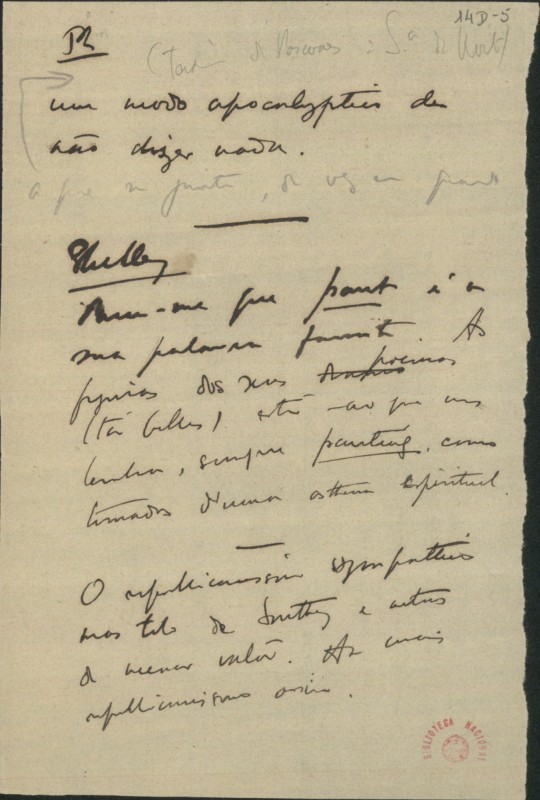 14D-5
um modo apocalyptico de
não dizer nada.
Shelley
que pant é a
sua palavra favorita. As
figuras dos seus poemas
(tão bellas) estão - ao que me
lembra, sempre panting, como
tomadas d'uma asthma espiritual.
O republicanismo sympathico
mas tolo de Southey e outros
de menor valor. Ha mais
republicanismo assim.
BIBLIOTECA NACIONAL